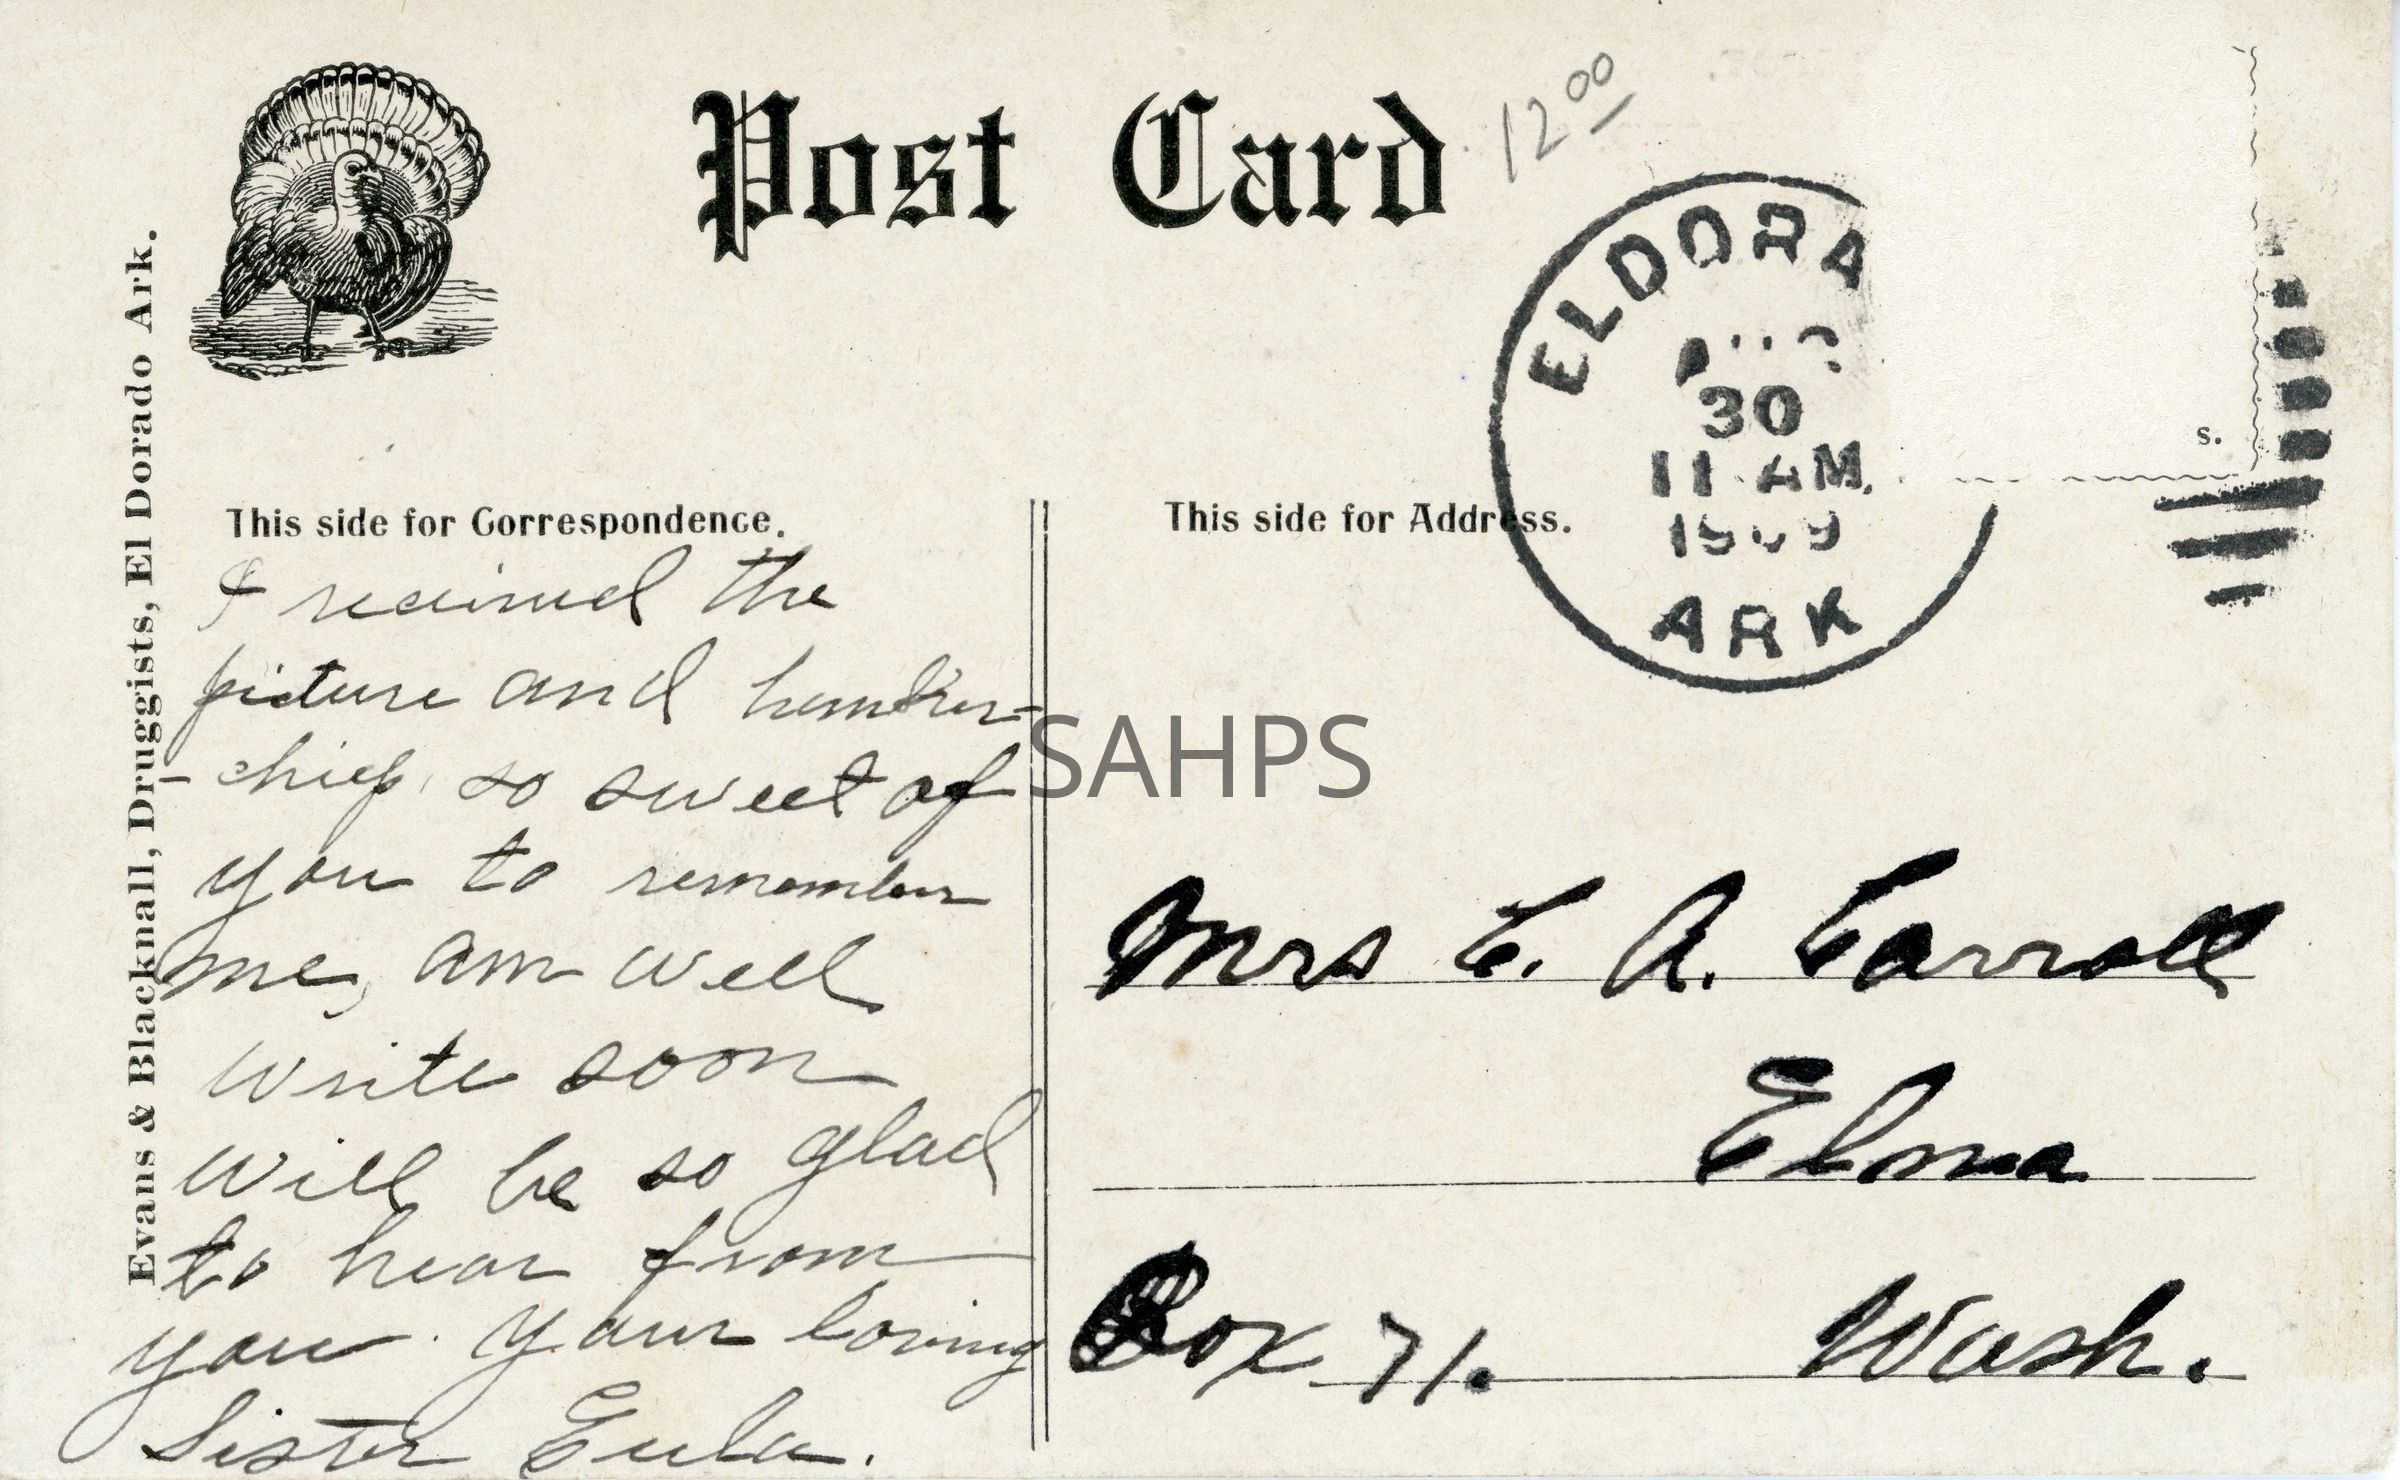 Post Card
12 00
ELDORA
30
11 AM
1909
ARK
s.
Evans & Blacknall, Druggists, El Dorado Ark.
This side for Correspondence.
This side for Address.
I received the
picture and hanker-
-chief, so sweet of
you to remember
me, am well
write soon
will be so glad
to hear from
you. Your loving
Sister Eula.
SAHPS
Mrs C. A. Carroll
Elma
Box 71. Wash.